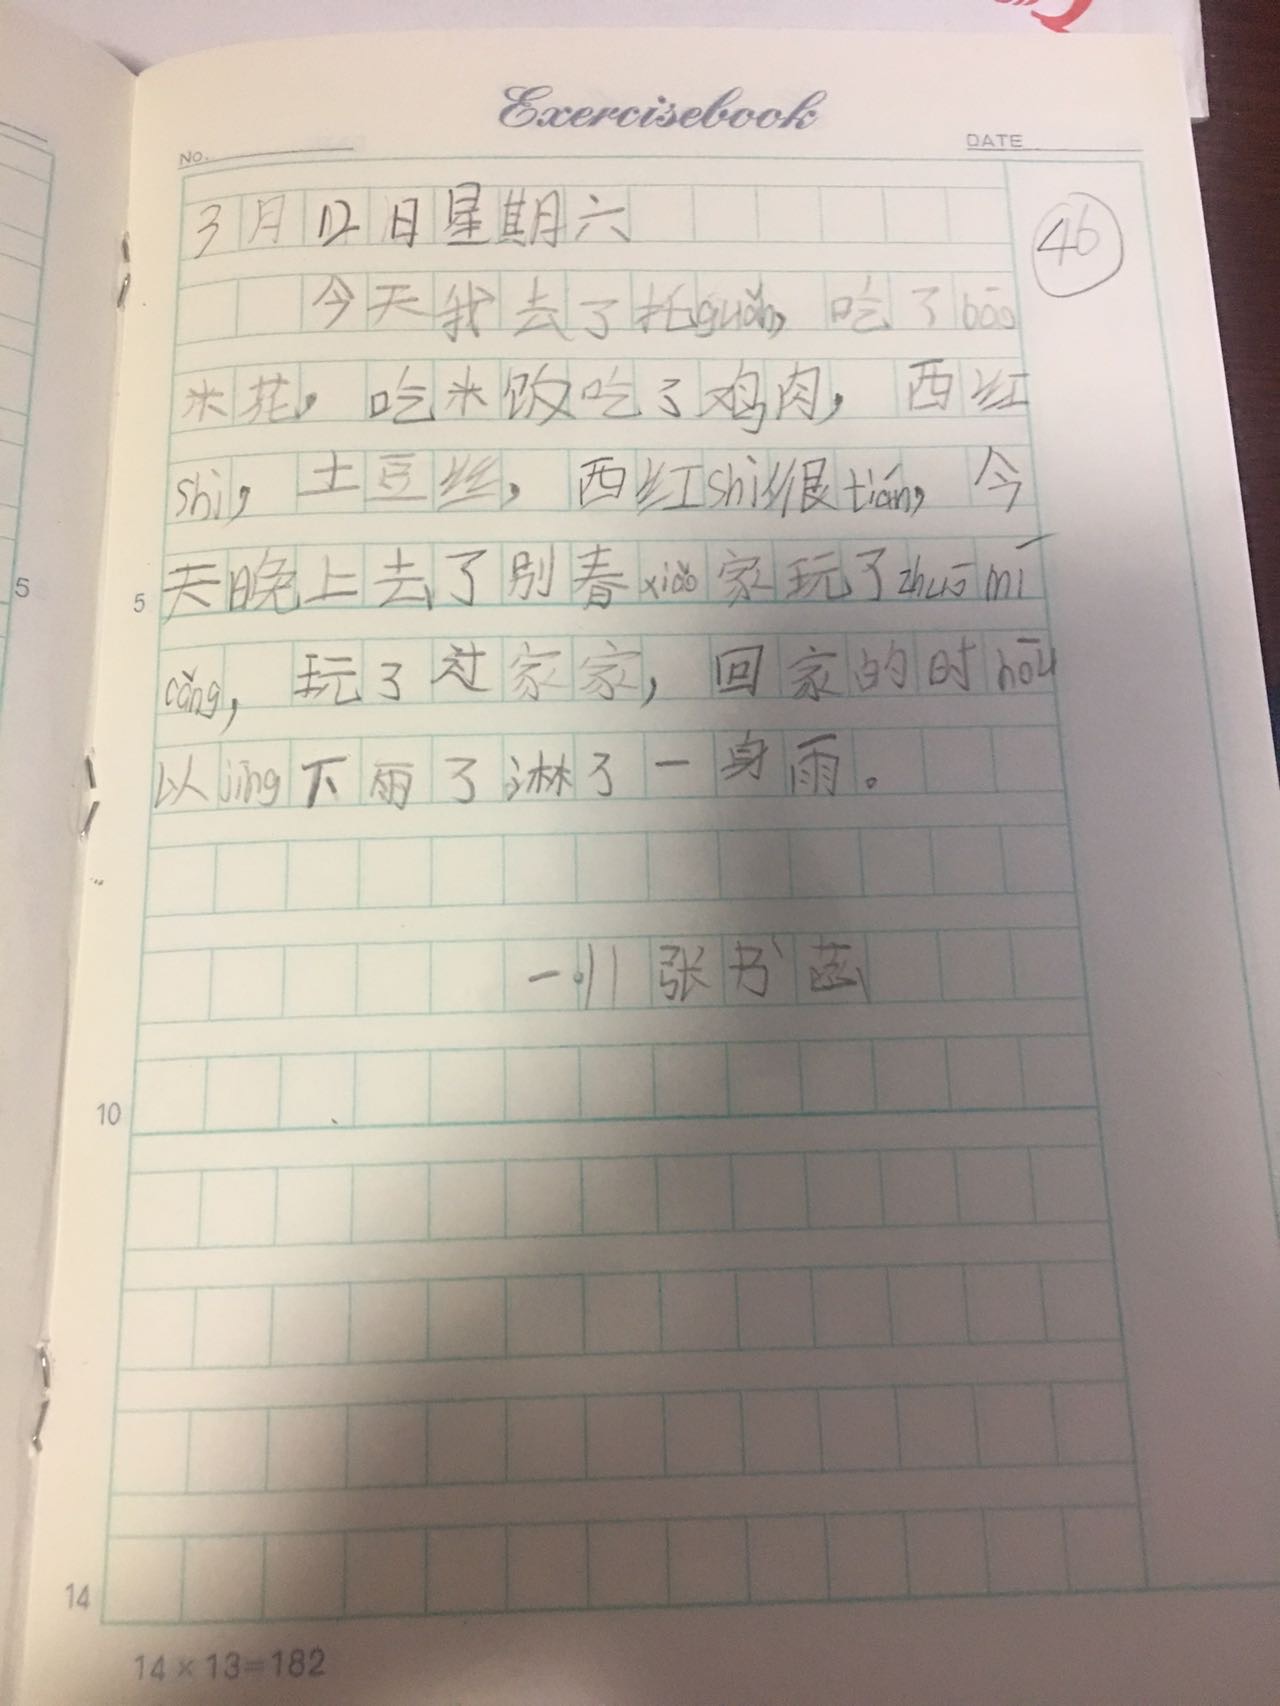 Exercisebook
NO.
DATE
3月12日星期六
46
今天我去了托guǎn，吃了bāo
米花，吃米饭吃了鸡肉，西红
shì，土豆丝，西红shì很tián，今
5
天晚上去了别春xiǎo家玩了zhuō mí
5
cáng，玩了过家家，回家的时hōu
以jīng下雨了淋了一身雨。
一.11张书菡
10
14
14×13=182